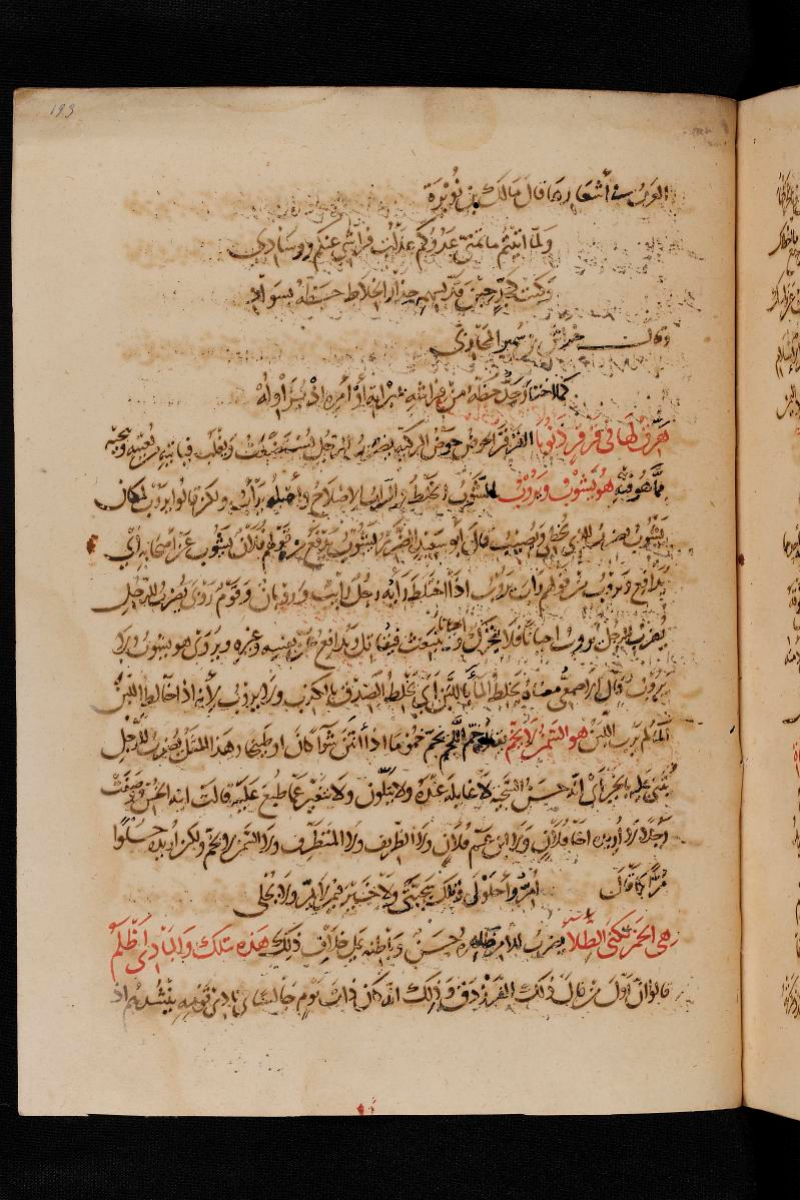 193
العرب في أشعارها قال مالك بن نويرة
ولما اتيتم ما تمنى عدوكم عدلت فراشي عنكم ووسادي
وكنت كذي حين قد بسهم حذار الخلاط حسنطه بسواد
وقال خراش بن سمير المحاربي
كما اختار جد حظه من فراشه امره اذ
هرق لها في قرقر ذنوبا القرقر الحوض حوض الركية يضرب للرجل يستضعف ويغلب فياتيه من يعينه وينجيه
مما هو فيه هو يشوب ويروب الشوب الخلط الاصلاح واصله يرأب ولكن قالوا يروب لمكان
يشوب يضرب للذي يخطئ ويصيب قال أبو سعيد الضرير يشوب يدفع من قولهم فلان يشوب عن اصحابه أي
يدافع ويروب من قولهم راب يروب اذا اختلط رايه رجل رائب وروبان وقوم روبى يضرب للرجل
يضرب للرجل يروب احيانا فلا يتحرك واحيانا ينبعث فيقاتل ويدافع عن نفسه وغيره ويروى هو يشوب ولا
يروب قال الاصمعي معناه يخلط الماء باللبن أي يخلط الصدق بالكذب ولا يروب لأنه اذا خالط اللبن
الماء لم يرب اللبن هو السمن لا يخم يقال خم اللحم يخم خموما اذا أنتن شواء كان او طبيخا وهذا المثل يضرب للرجل
يثنى عليه بالخير أي انه حسن السجية لا غايلة عنده ولا يتلون ولا يتغير عما طبع عليه قالت ابنة الخس ووصفت
رجلا لا أريده اخا فلان ولا ابن عم فلان ولا الظريف ولا المتظرف ولا السمن لا يخم ولكن أريده حلوا
مرا كما قال أمر وأحلولي وتلك سجيتي ولا خير فيمن لا يمر ولا يحلي
هي الخمر تكنى الطلاء يضرب للامر ظاهره حسن وباطنه على خلاف ذلك هذه بتلك والبادي أظلم
قالوا ان اول من قال ذلك الفرزدق وذلك انه كان ذات يوم جالسا في نادي قومه ينشدهم اذ